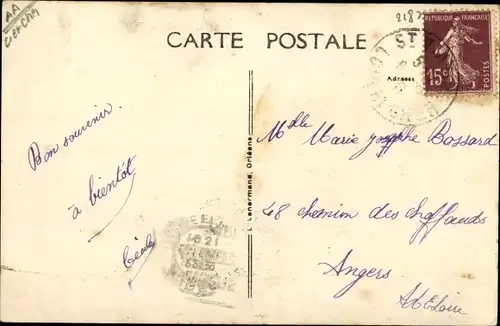 AA
CARTE POSTALE
REPUBLIQUE FRANÇAISE
15c
POSTES
Adresse
Bon souvenir
à bientôt
Cécile
L. Lenormand, Orléans
Melle Marie Josephe Bossard
48 chemin des
Angers
M et Loire